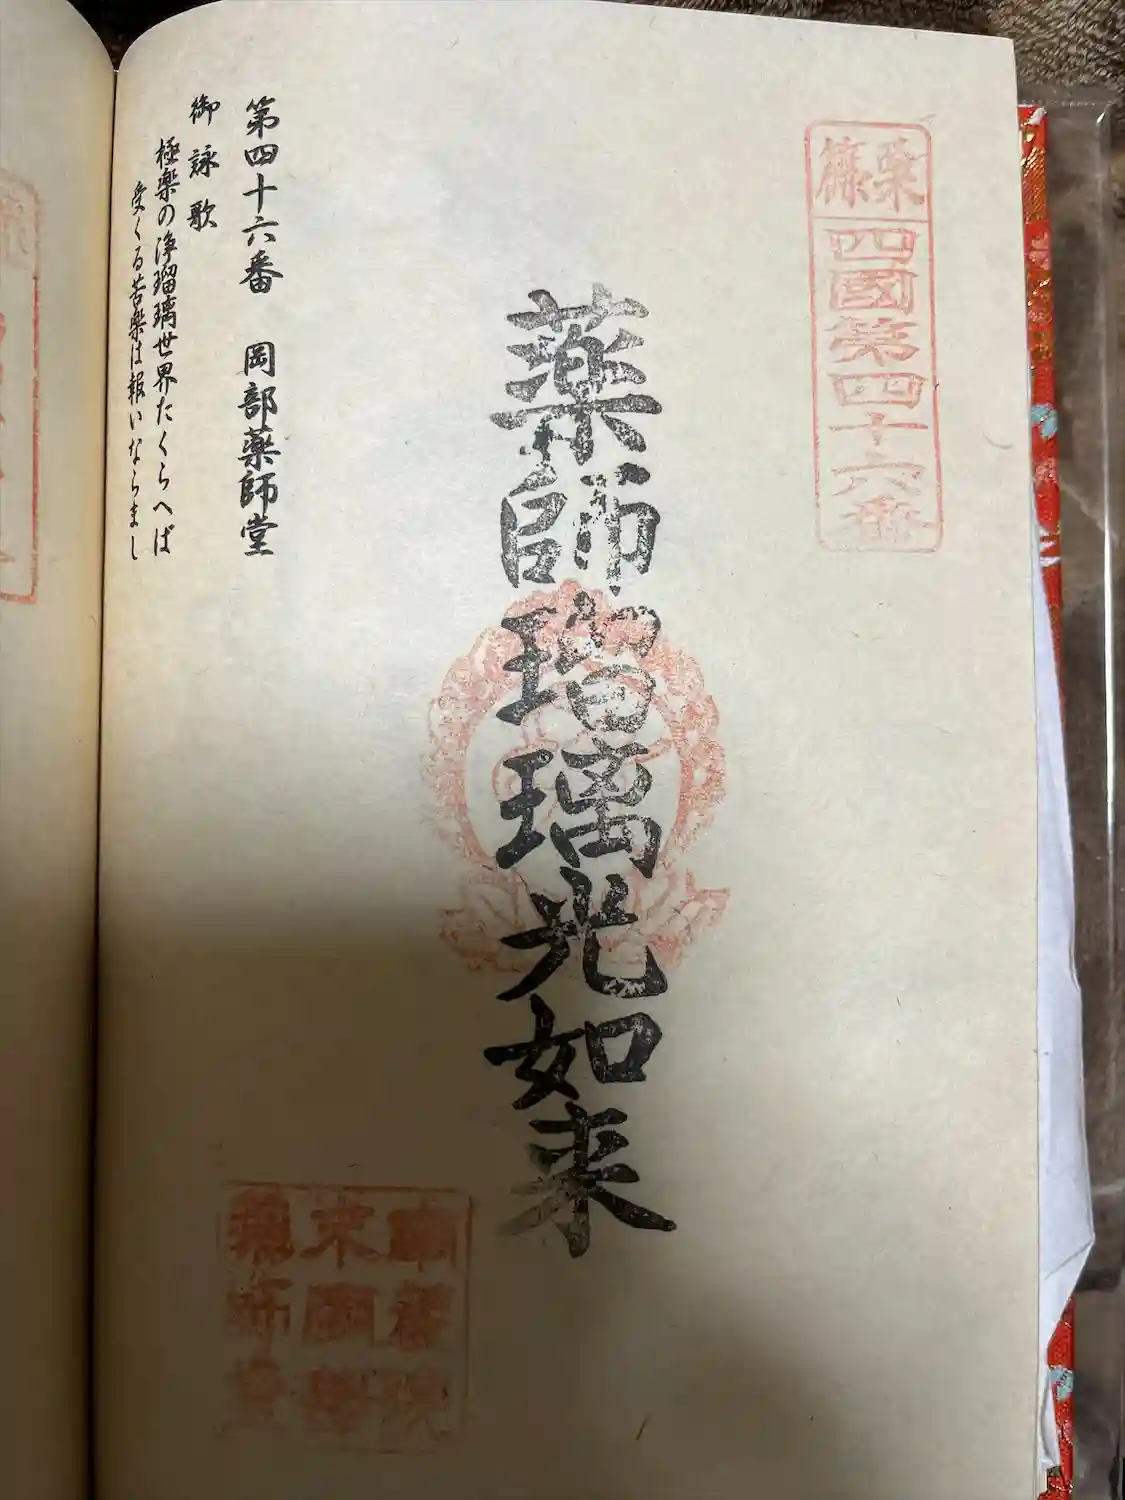 篠栗
四國第四十六番
薬師瑠璃光如来
第四十六番 岡部薬師堂
御詠歌
極楽の浄瑠璃世界たくらへば
受くる苦楽は報いならまし